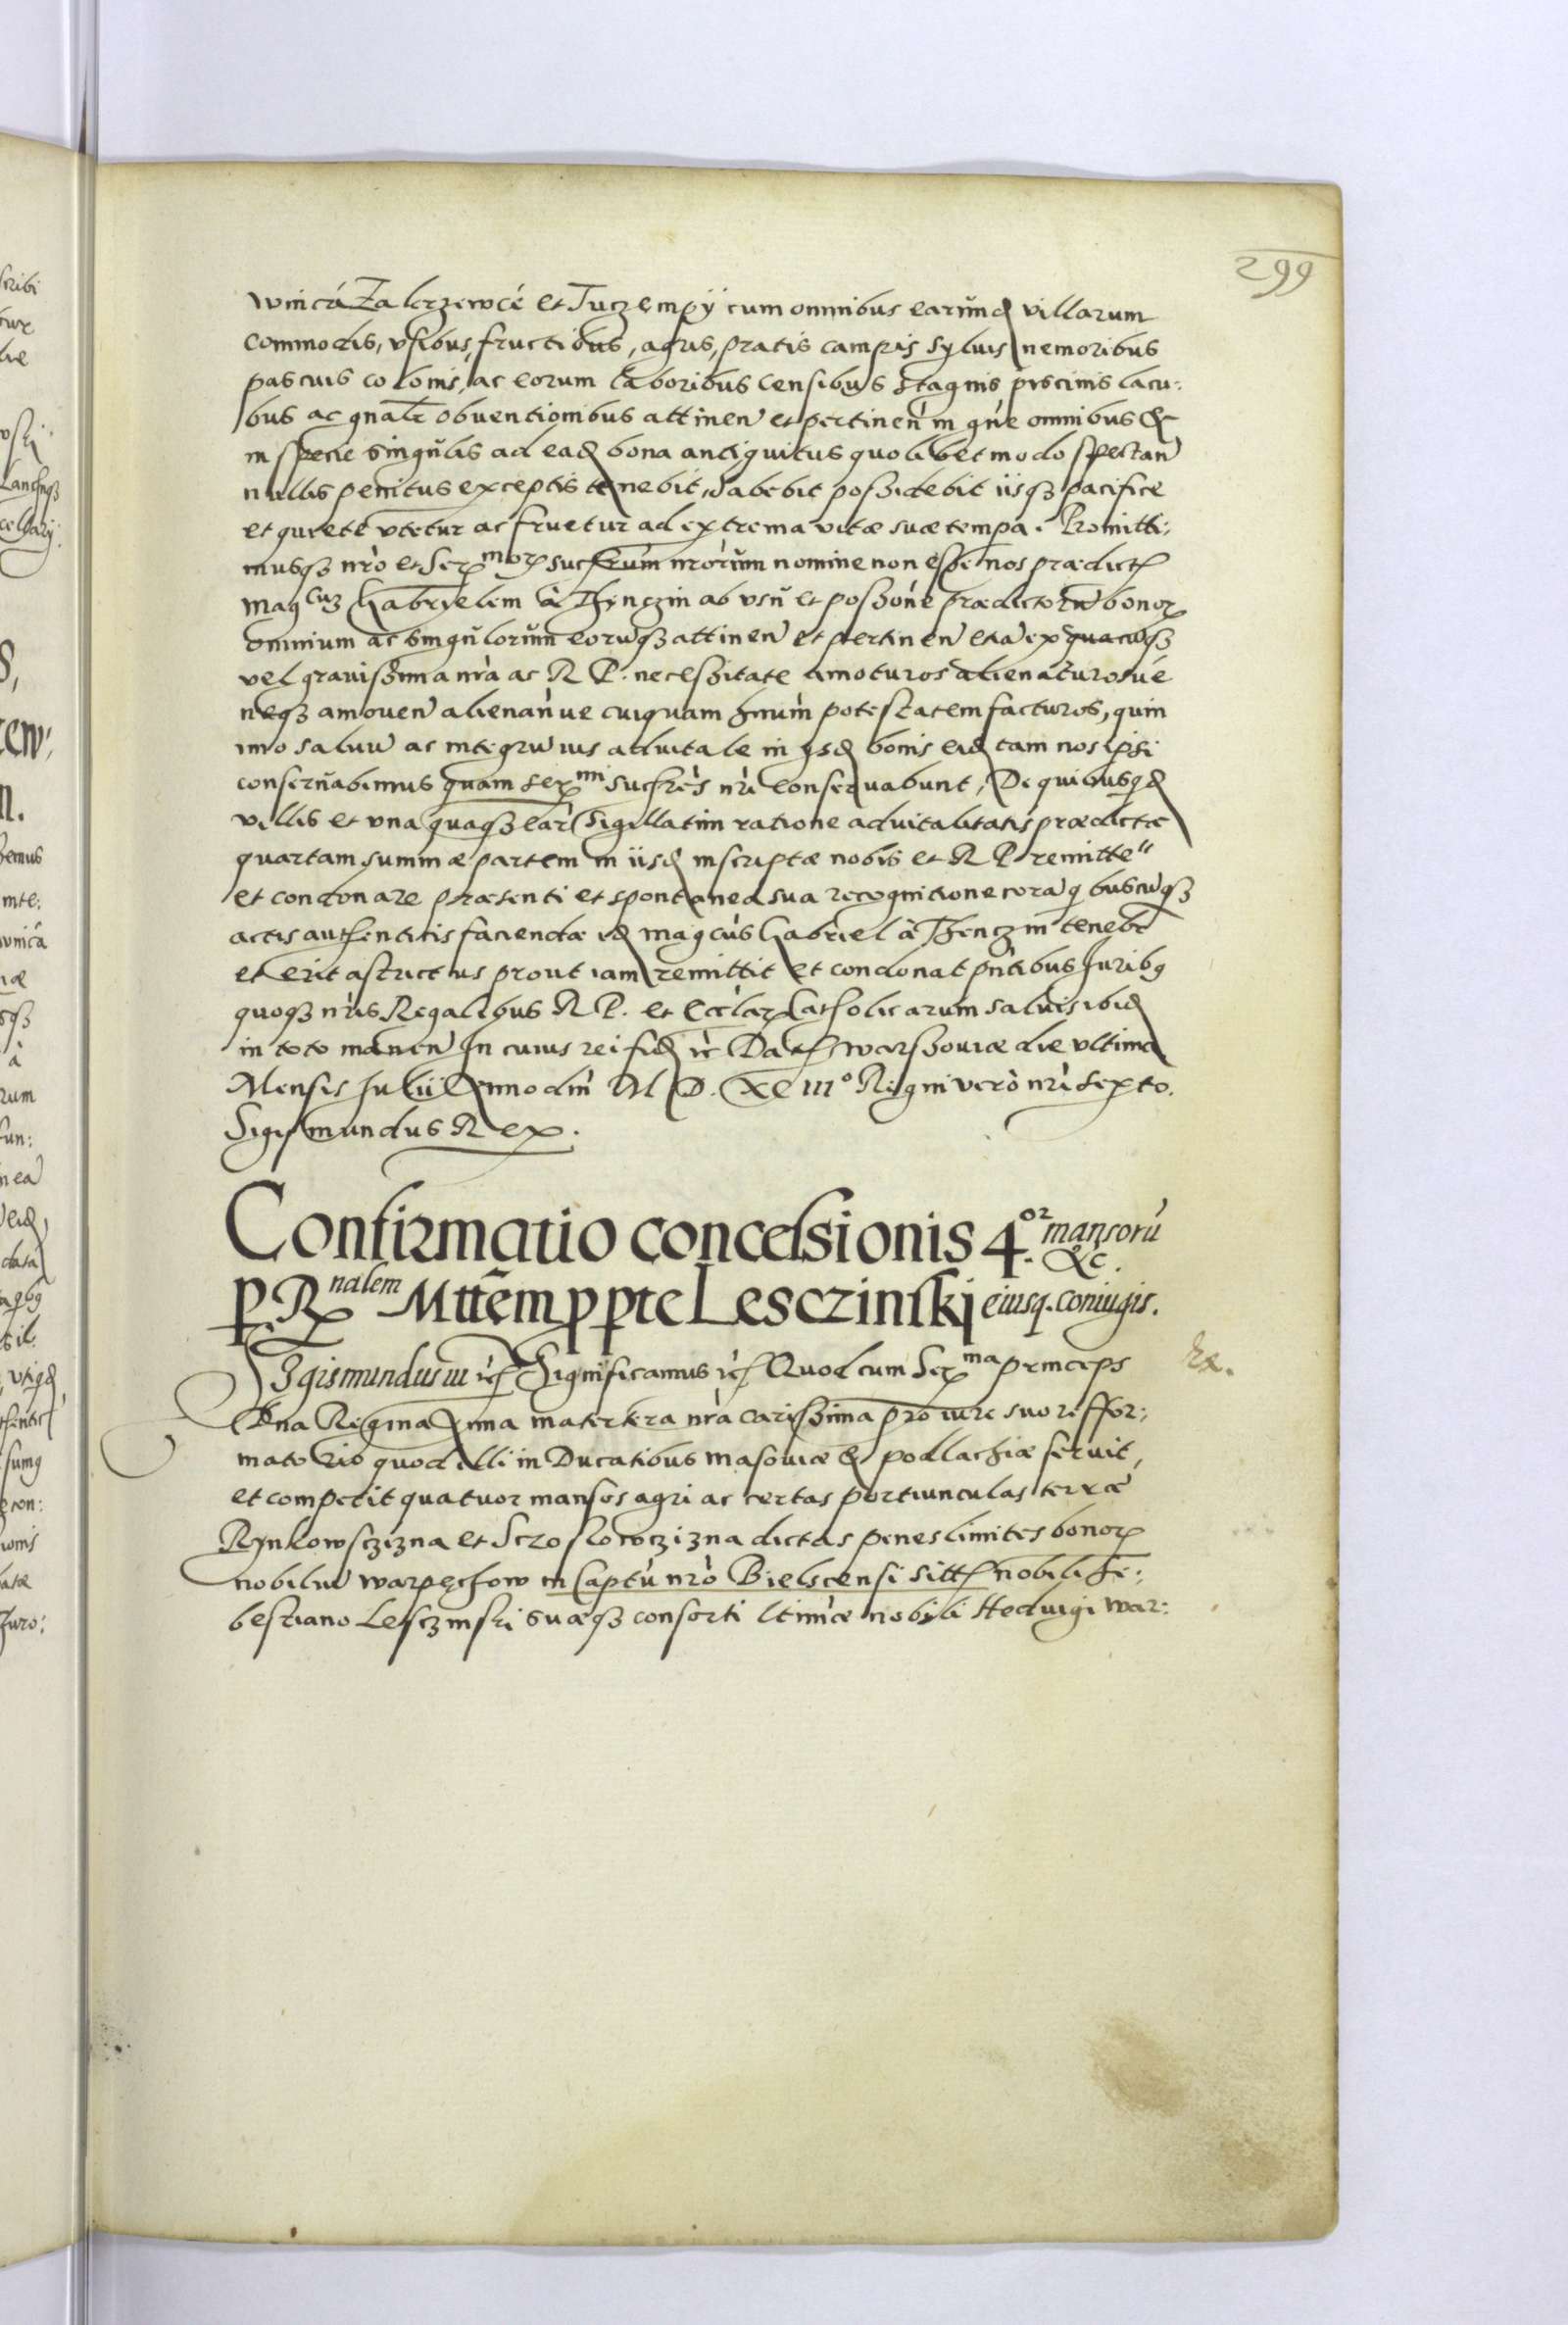 299
winicá Zalerzewcé et Tuczempÿ cum omnibus earũnd villarum
commodis, vsibus, fructibus, agris, pratis campis syluis nemoribus
pascuis colonis, ac eorum laboribus censibus stagnis piscinis lacu:
bus ac gnalr obventionibus attinen et pertinen in gñe omnibus &
in specie singũlis ad ead bona antiquitus quolibet modo spectan
nullis penitus exceptis tenebit, habebit poßidebit iisqȝ pacifice
et quiete vtetur ac fruetur ad extrema vitæ suæ tempa. Promitti:
musqȝ nr̀o et Ser^mor suc̃rum nr̀orũm nomine non eße nos prædict
Mag^cuȝ Gabryelem à Thęnczin ab vsũ et poßòne prædictorũ bonor
omnium ac singũlorũm eorũqȝ attinen et pertinen etiã ex quacũqȝ
vel grauißima nr̀a ac R P. necessitate amoturos alienaturosúe
neqȝ amouen alienan̄ue cuiquam hnùm potestatem facturos, quin
imo saluũ ac integrũ ius aduitale in ysd bonis eid tam nos ipsi
conserũabimus quam ser^mi suc̃res nr̀i conseruabunt, De quibusqd
villis et vna quaqȝ ear̀ sigillatim ratione aduitalitatis prædictæ
quartam summæ partem in iisd inscriptæ nobis et R P remitte
et condonare præsenti et spontanea sua recognitione corã qbuscũqȝ
actis authenticis facienda id magcùs Gabriel à Thenczin tenebr
et erit astrictus prout iam remittit et condonat pn̄tibus Juribq
quoqȝ nr̀is Regalibus R P. et Eccl̀ar Catholicarum saluis ibid
in toto manen In cuius rei fid ic̀ Dat Warßouiæ die vltima
Mensis Julii Anno dni M D. XC III° Regni verò nr̀i sexto.
Sigismundus Rex.
Confirmatio concessionis 4.^or mansorũ &c.
p R^nalem Mttẽm p pte Lesczinskj eiusq. coniugis.
SJgismundus iii ic̀ Significamus ic̀ Quod cum Ser^ma princeps Ex.
Dna Regina Anna matertera nr̀a carißima pro iure suo reffor:
matorio quod illi in Ducatibus Masouiæ & podlachiæ seruit,
et competit quatuor mansos agri ac certas portiunculas terræ
Rynkowsczizna et Scroslowczizna dictas penes limites bonor
nobiliũ Warpęchow in Captũ nr̀o Bielscensi sitt nobili Se:
bestiano Lesczinski suæqȝ consorti ltim̀æ nobili Heduigi War: